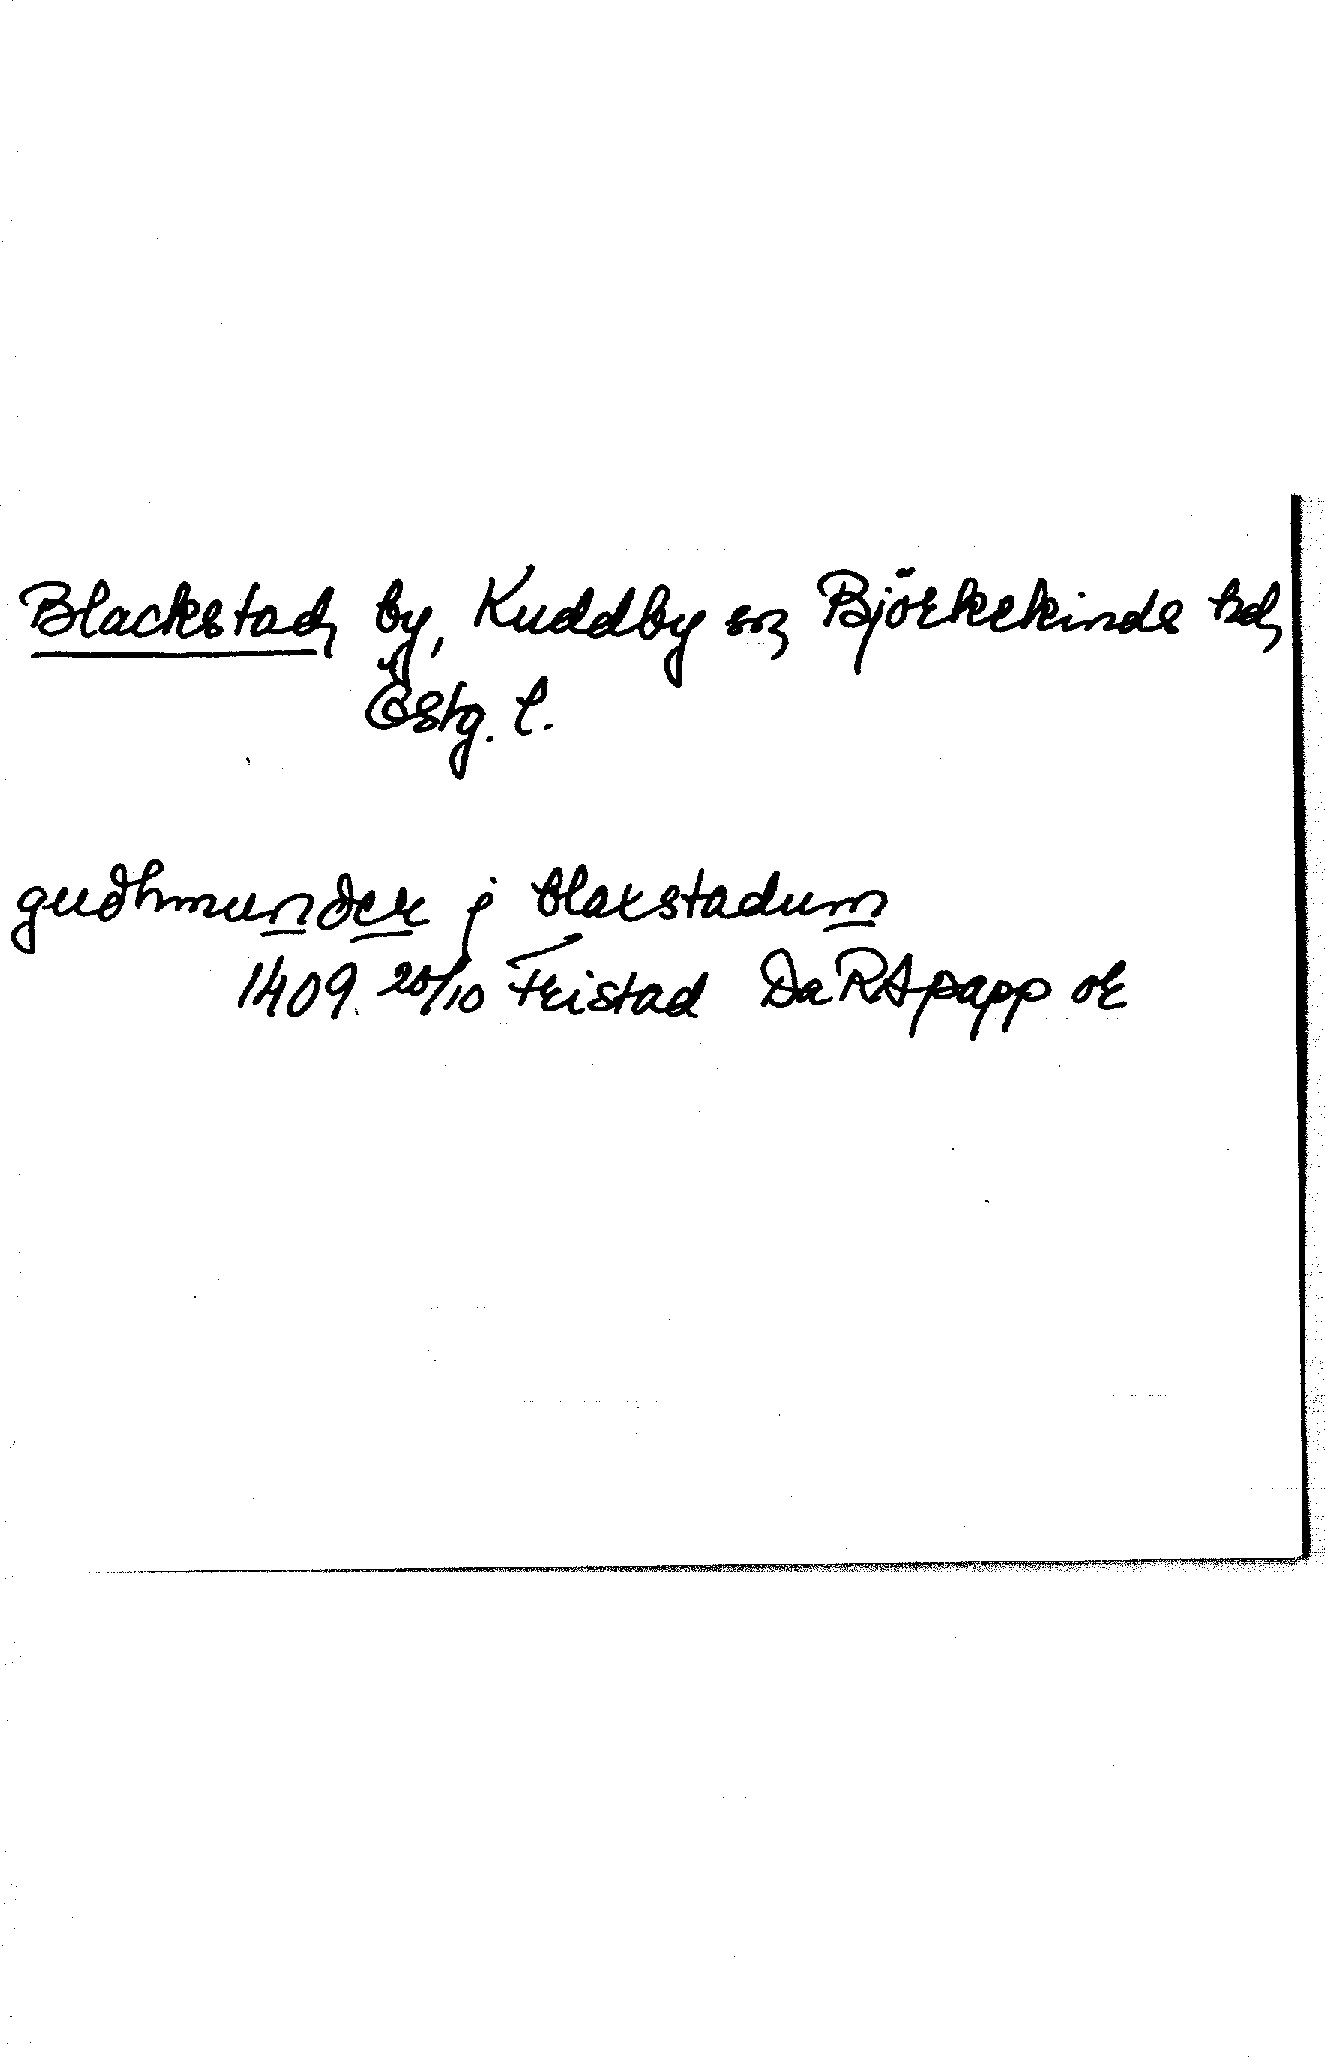 Blackstad, by, Kuddby sn, Björkekinds hd,
Östg. l.
gudhmunder j blaxstadum
1409 20/10 Fristad Da RA papp or